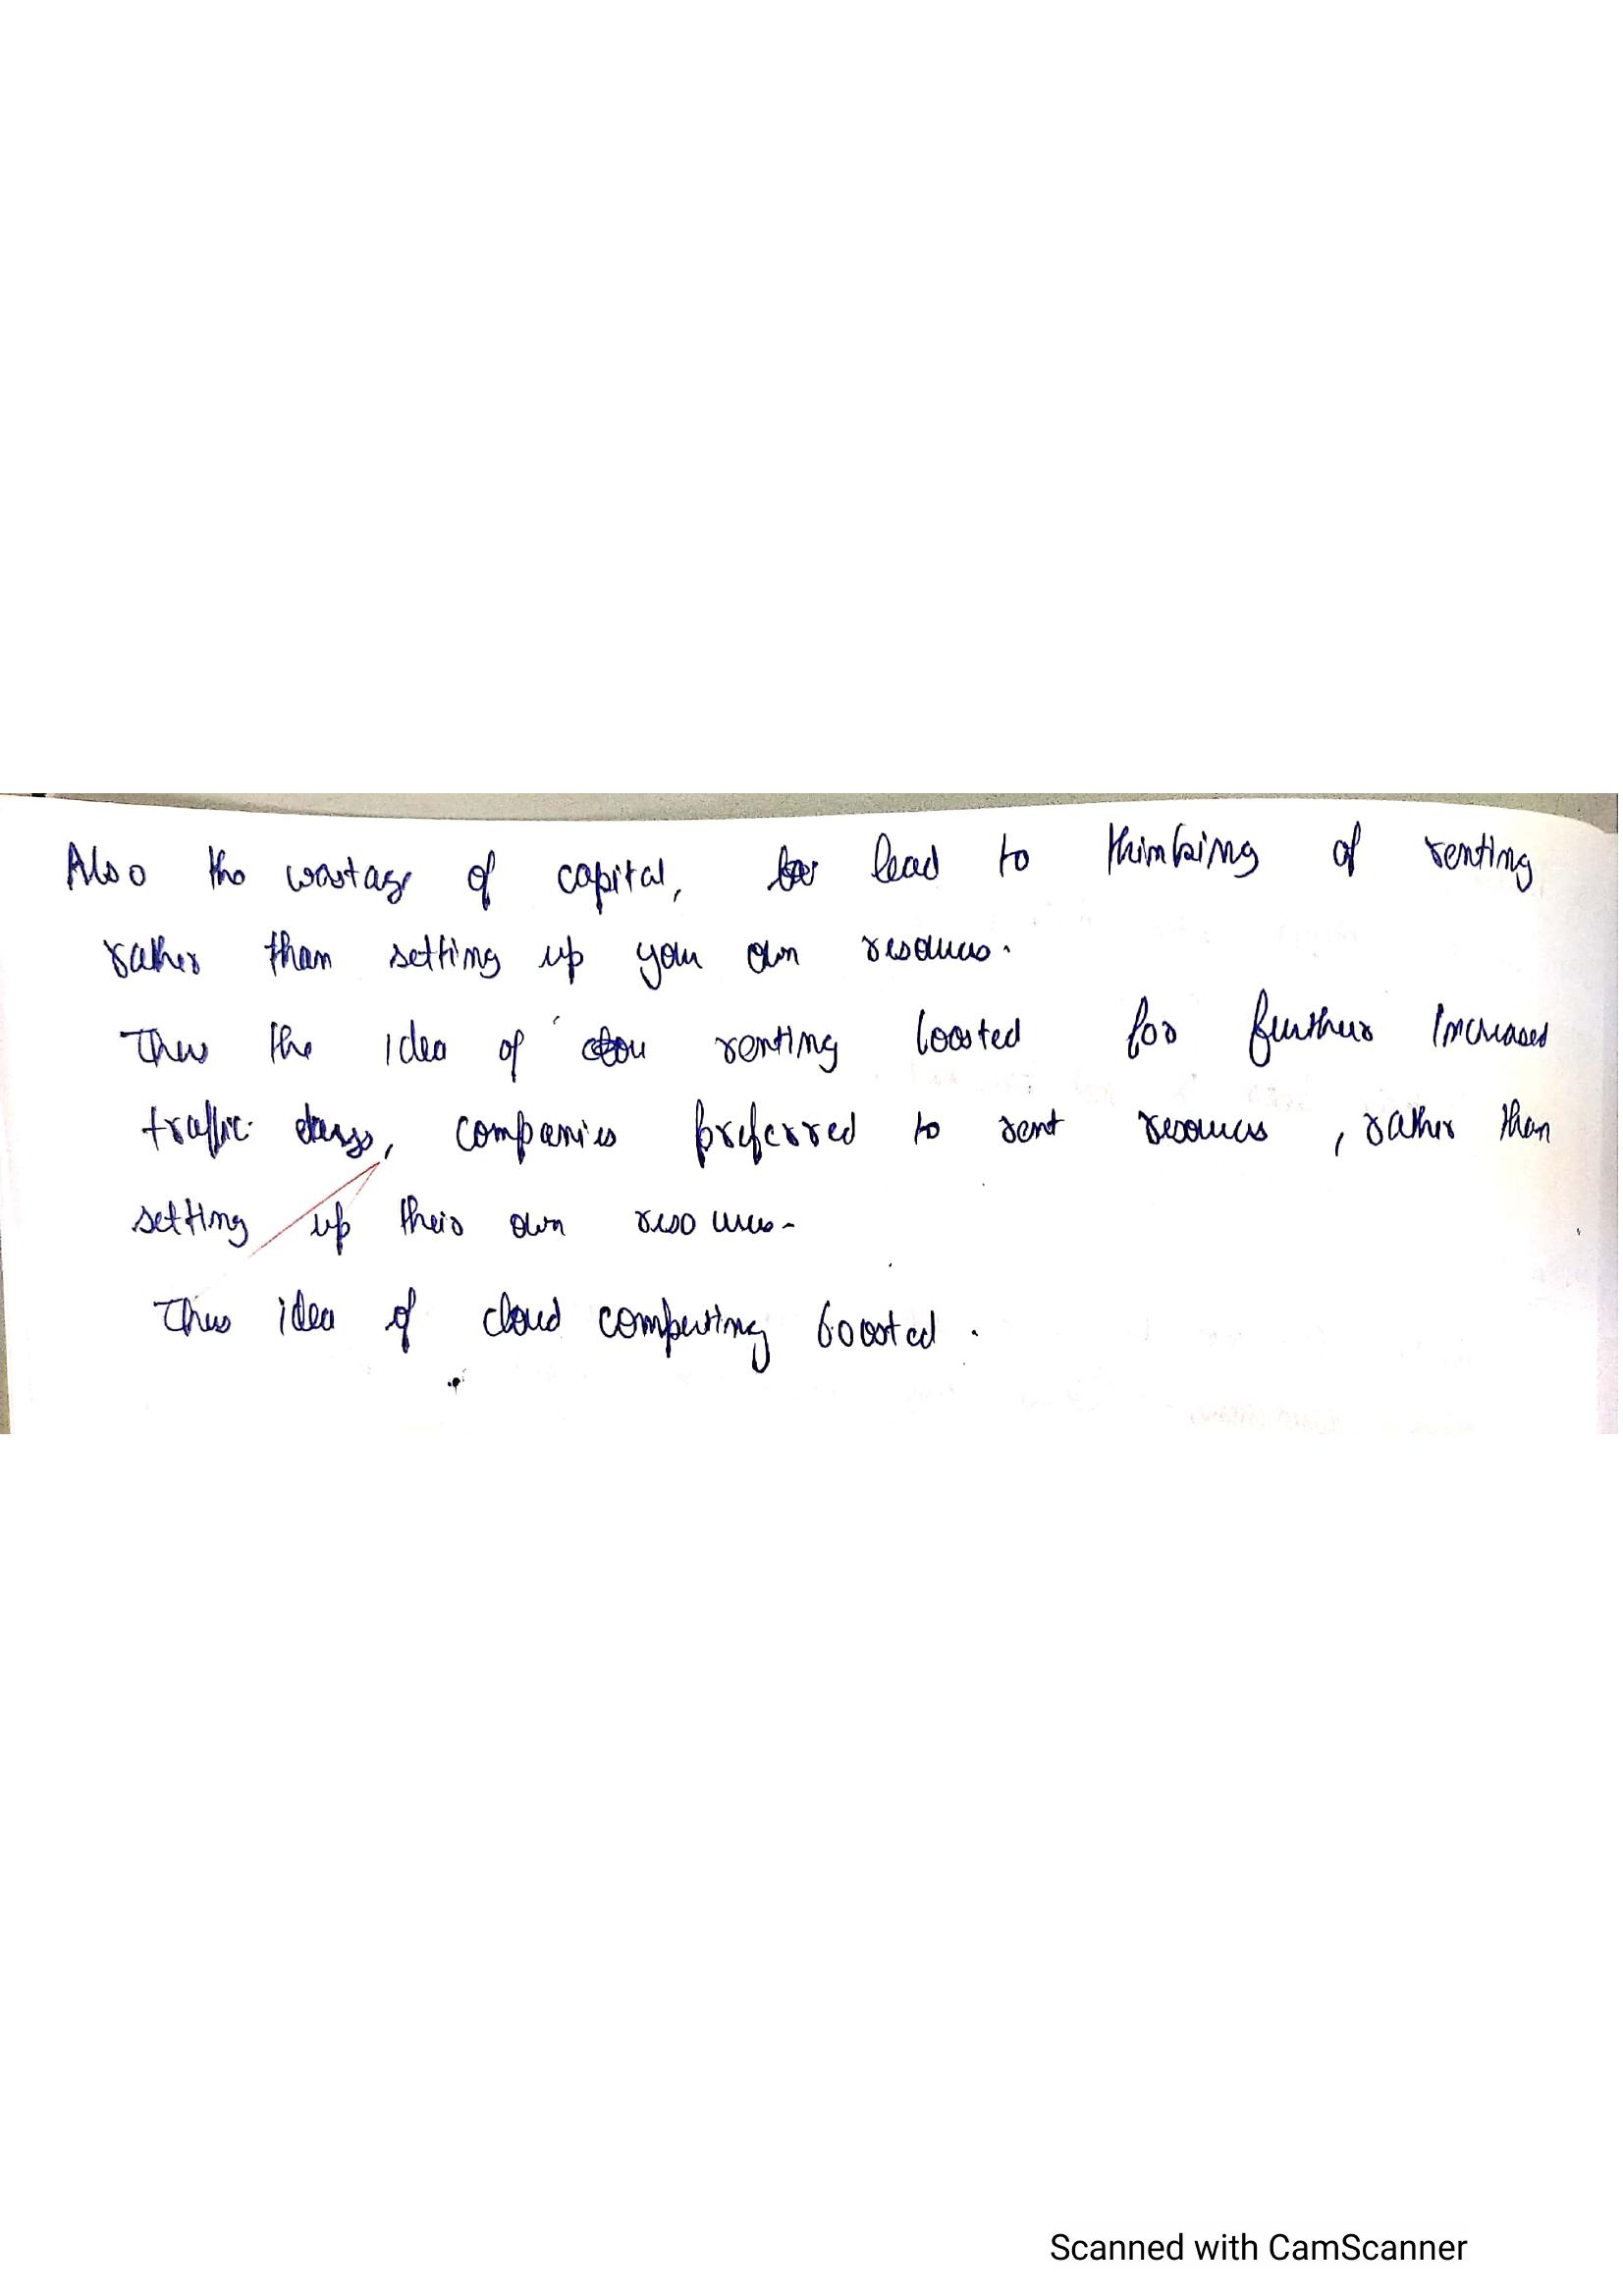 Also the wastage of capital, lead to thinking of renting
rather than setting up your own resources.
Thus the idea of renting boosted for further increased
traffic days, companies preferred to rent resources, rather than
setting up their own resources.
Thus idea of cloud computing boosted.
Scanned with CamScanner